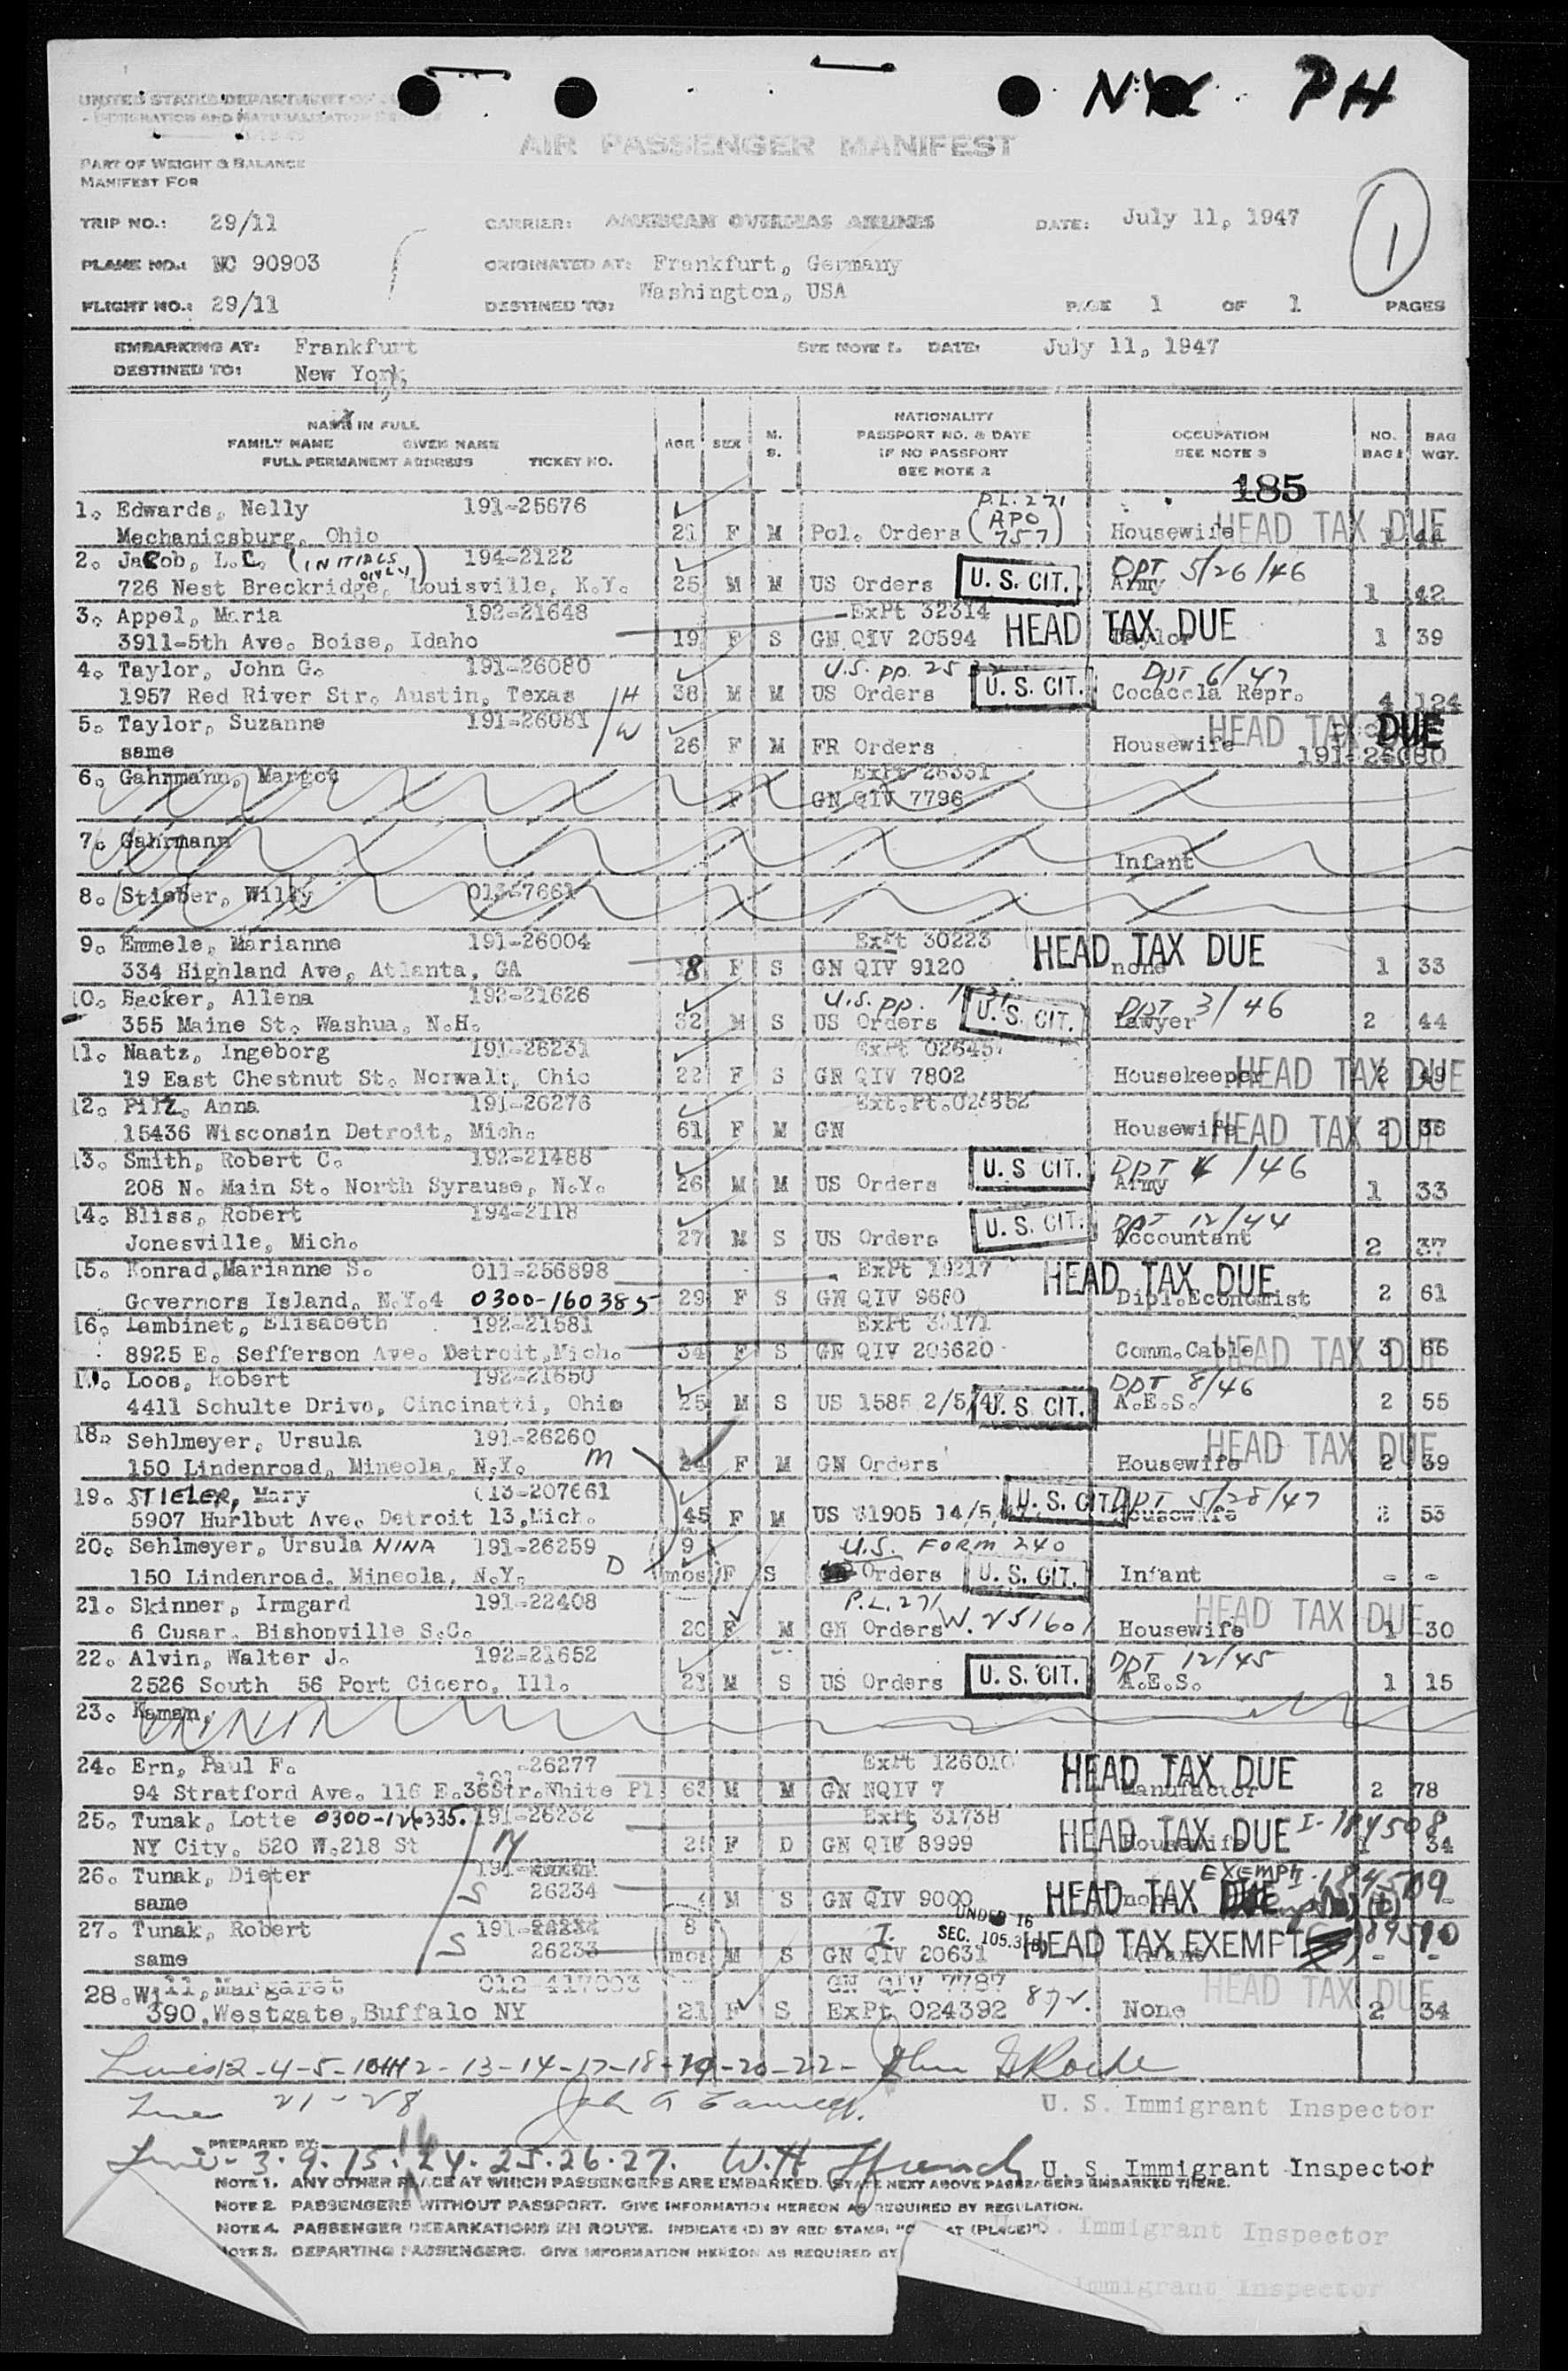 NYC PH
UNITED STATES DEPARTMENT OF
IMMIGRATION AND NATURALIZATION SERVICE
AIR PASSENGER MANIFEST
PART OF WEIGHT & BALANCE
MANIFEST FOR
TRIP NO.: 29/11 CARRIER: AMERICAN OVERSEAS AIRLINES DATE: July 11, 1947
1
PLANE NO.: NC 90903 ORIGINATED AT: Frankfurt, Germany
FLIGHT NO.: 29/11 DESTINED TO: Washington, USA PAGE 1 OF 1 PAGES
EMBARKING AT: Frankfurt SEE NOTE 1. DATE: July 11, 1947
DESTINED TO: New York,
NAME IN FULL
FAMILY NAME GIVEN NAME
FULL PERMANENT ADDRESS TICKET NO. AGE SEX M. S. NATIONALITY PASSPORT NO. & DATE IF NO PASSPORT SEE NOTE 2 OCCUPATION SEE NOTE 3 NO. BAGS BAG WGT.
185
1. Edwards, Nelly 191-25676 P.L. 271
Mechanicsburg, Ohio 21 F M Pol. Orders (APO 757) Housewife HEAD TAX DUE 1 44
2. Jacob, L.C. (INITIALS ONLY) 194-2122 DPT 5/26/46
726 Nest Breckridge, Louisville, K.Y. 25 M M US Orders U. S. CIT. Army 1 42
3. Appel, Maria 192-21648 ExPt 32314
3911-5th Ave. Boise, Idaho 19 F S GN QIV 20594 HEAD TAX DUE Taylor 1 39
4. Taylor, John G. 191-26080 U.S. pp. DPT 6/47
1957 Red River Str. Austin, Texas H 38 M M US Orders U. S. CIT. Cocacola Repr. 4 124
5. Taylor, Suzanne 191-26081 W
same 26 F M FR Orders Housewife HEAD TAX DUE 191-26080
6. Gahrmann, Margot ExPt 26351
F GN QIV 7796
7. Gahrmann
Infant
8. Stieber, Willy 013-7661
9. Emmele, Marianne 191-26004 ExPt 30223
334 Highland Ave, Atlanta, GA 18 F S GN QIV 9120 HEAD TAX DUE none 1 33
10. Backer, Allena 192-21626 U.S. pp. DPT 3/46
355 Maine St. Washua, N.H. 32 M S US Orders U. S. CIT. Lawyer 2 44
11. Naatz, Ingeborg 191-26231 ExPt 02645
19 East Chestnut St. Norwalk, Ohio 22 F S GN QIV 7802 Housekeeper HEAD TAX DUE 2 49
12. Pilz, Anna 191-26276 Ext.Pt.025852
15436 Wisconsin Detroit, Mich. 61 F M GN Housewife HEAD TAX DUE 2 36
13. Smith, Robert C. 192-21488 DPT 4/46
208 N. Main St. North Syrause, N.Y. 26 M M US Orders U. S CIT. Army 1 33
14. Bliss, Robert 194-2118 DPT 12/44
Jonesville, Mich. 27 M S US Orders U. S. CIT. Accountant 2 37
15. Konrad,Marianne S. 011-256898 ExPt 19217
Governors Island, N.Y.4 0300-160385 29 F S GN QIV 9680 HEAD TAX DUE Dipl.Economist 2 61
16. Lambinet, Elisabeth 192-21581 ExPt 35171
8925 E. Sefferson Ave. Detroit,Mich. 34 F S GN QIV 206620 Comm.Cable HEAD TAX DUE 3 66
17. Loos, Robert 192-21650 DPT 8/46
4411 Schulte Drive, Cincinatti, Ohio 25 M S US 1585 2/5/47 U. S. CIT. A.E.S. 2 55
18. Sehlmeyer, Ursula 191-26260 M
150 Lindenroad, Mineola, N.Y. 24 F M GN Orders Housewife HEAD TAX DUE 2 39
19. STIELER, Mary 013-207661 DPT 5/28/47
5907 Hurlbut Ave. Detroit 13,Mich. 45 F M US 81905 14/5/47 U. S. CIT. Housewife 2 53
20. Sehlmeyer, Ursula NINA 191-26259 D 9 U.S. FORM 240
150 Lindenroad, Mineola, N.Y. mos F S Orders U. S. CIT. Infant - -
21. Skinner, Irmgard 191-22408 P.L. 271
6 Cusar. Bishopville S.C. 20 F M GN Orders W.251601 Housewife HEAD TAX DUE 1 30
22. Alvin, Walter J. 192-21652 DPT 12/45
2526 South 56 Port Cicero, Ill. 21 M S US Orders U. S. CIT. A.E.S. 1 15
23. Kaman,
24. Ern, Paul F. 191-26277 ExPt 126010
94 Stratford Ave. 116 E.36Str.White Pl 63 M M GN NQIV 7 HEAD TAX DUE Manufactor 2 78
25. Tunak, Lotte 0300-126335. 191-26232 ExPt 31738 I-184508
NY City, 520 W.218 St M F D GN QIV 8999 HEAD TAX DUE Housewife 1 34
26. Tunak, Dieter EXEMPT I-184509
same S 26234 4 M S GN QIV 9000 HEAD TAX DUE none -
27. Tunak, Robert 191-26234 8 I. UNDER 16 SEC. 105.3(B)
same S 26233 mos M S GN QIV 20631 HEAD TAX EXEMPT Infant - -
28. Will, Margaret 012-417003 GN QIV 7787
390,Westgate,Buffalo NY 21 F S ExPt 024392 None HEAD TAX DUE 2 34
Lines 2-4-5-10-11-12-13-14-17-18-19-20-22-
Line 21-28
U. S. Immigrant Inspector
PREPARED BY:
Line-3.9.15.16.24.25.26.27. W.H. Ffrench U. S. Immigrant Inspector
NOTE 1. ANY OTHER PLACE AT WHICH PASSENGERS ARE EMBARKED. (STATE NEXT ABOVE PASSENGERS EMBARKED THERE.
NOTE 2. PASSENGERS WITHOUT PASSPORT. GIVE INFORMATION HEREON AS REQUIRED BY REGULATION.
NOTE 4. PASSENGER DEBARKATIONS EN ROUTE. INDICATE (D) BY RED STAMP: AT (PLACE)"
U. S. Immigrant Inspector
NOTE 3. DEPARTING PASSENGERS. GIVE INFORMATION HEREON AS REQUIRED BY
Immigrant Inspector